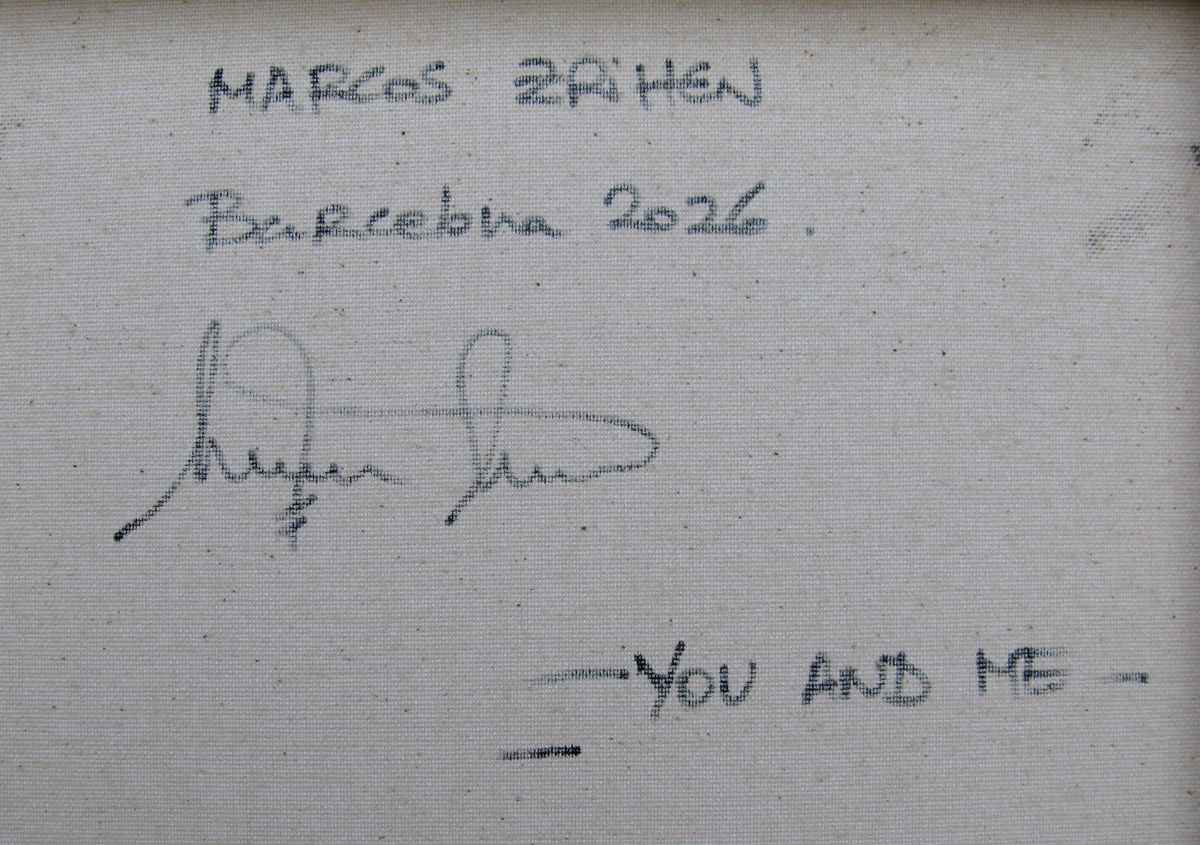 MARCOS ZRIHEN
Barcelona 2026.
— YOU AND ME —